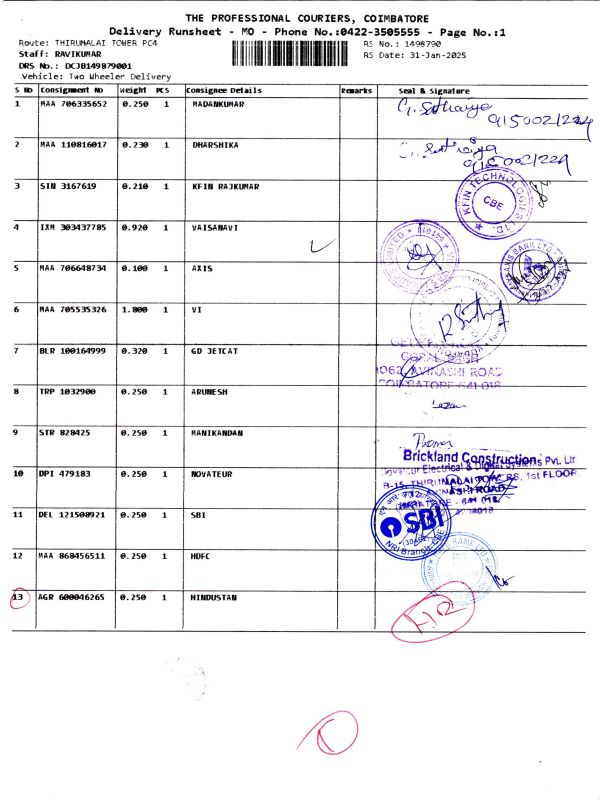 THE PROFESSIONAL COURIERS, COIMBATORE
Delivery Runsheet - MO - Phone No.:0422-3505555 - Page No.:1
Route: THIRUMALAI TOWER PC4
RS No.: 1498790
Staff: RAVIKUMAR
RS Date: 31-Jan-2025
DRS No.: DCJB149879001
Vehicle: Two Wheeler Delivery
S No Consignment No Weight PCS Consignee Details Remarks Seal & Signature
1 MAA 706335652 0.250 1 MADANKUMAR
2 MAA 110816017 0.230 1 DHARSHIKA
3 SIN 3167619 0.210 1 KFIN RAJKUMAR
KFIN TECHNOLOGIES LTD.
CBE
4 IXM 303437785 0.920 1 VAISANAVI
5 MAA 706648734 0.100 1 AXIS
AXIS BANK LTD
6 MAA 705535326 1.800 1 VI
7 BLR 100164999 0.320 1 GD JETCAT
AVINASHI ROAD
COIMBATORE-641 018
8 TRP 1032900 0.250 1 ARUNESH
9 STR 828425 0.250 1 MANIKANDAN
Brickland Construction
10 DPI 479183 0.250 1 NOVATEUR
Novateur Electrical & Digital Systems Pvt. Ltd
B-15, THIRUMALAI TOWERS, 1st FLOOR
AVINASHI ROAD
11 DEL 121508921 0.250 1 SBI
SBI
NRI Branch, CBE
12 MAA 868456511 0.250 1 HDFC
BANK LTD
13 AGR 600046265 0.250 1 HINDUSTAN